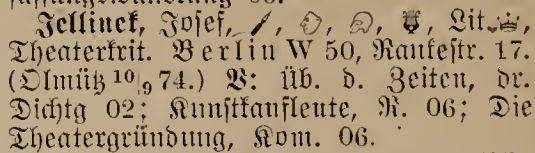 Jellinek, Josef, Lit.
Theaterkrit. Berlin W 50, Rankestr. 17.
(Olmütz 10/9 74.) V: üb. d. Zeiten, dr.
Dichtg 02; Kunstkaufleute, R. 06; Die
Theatergründung, Kom. 06.